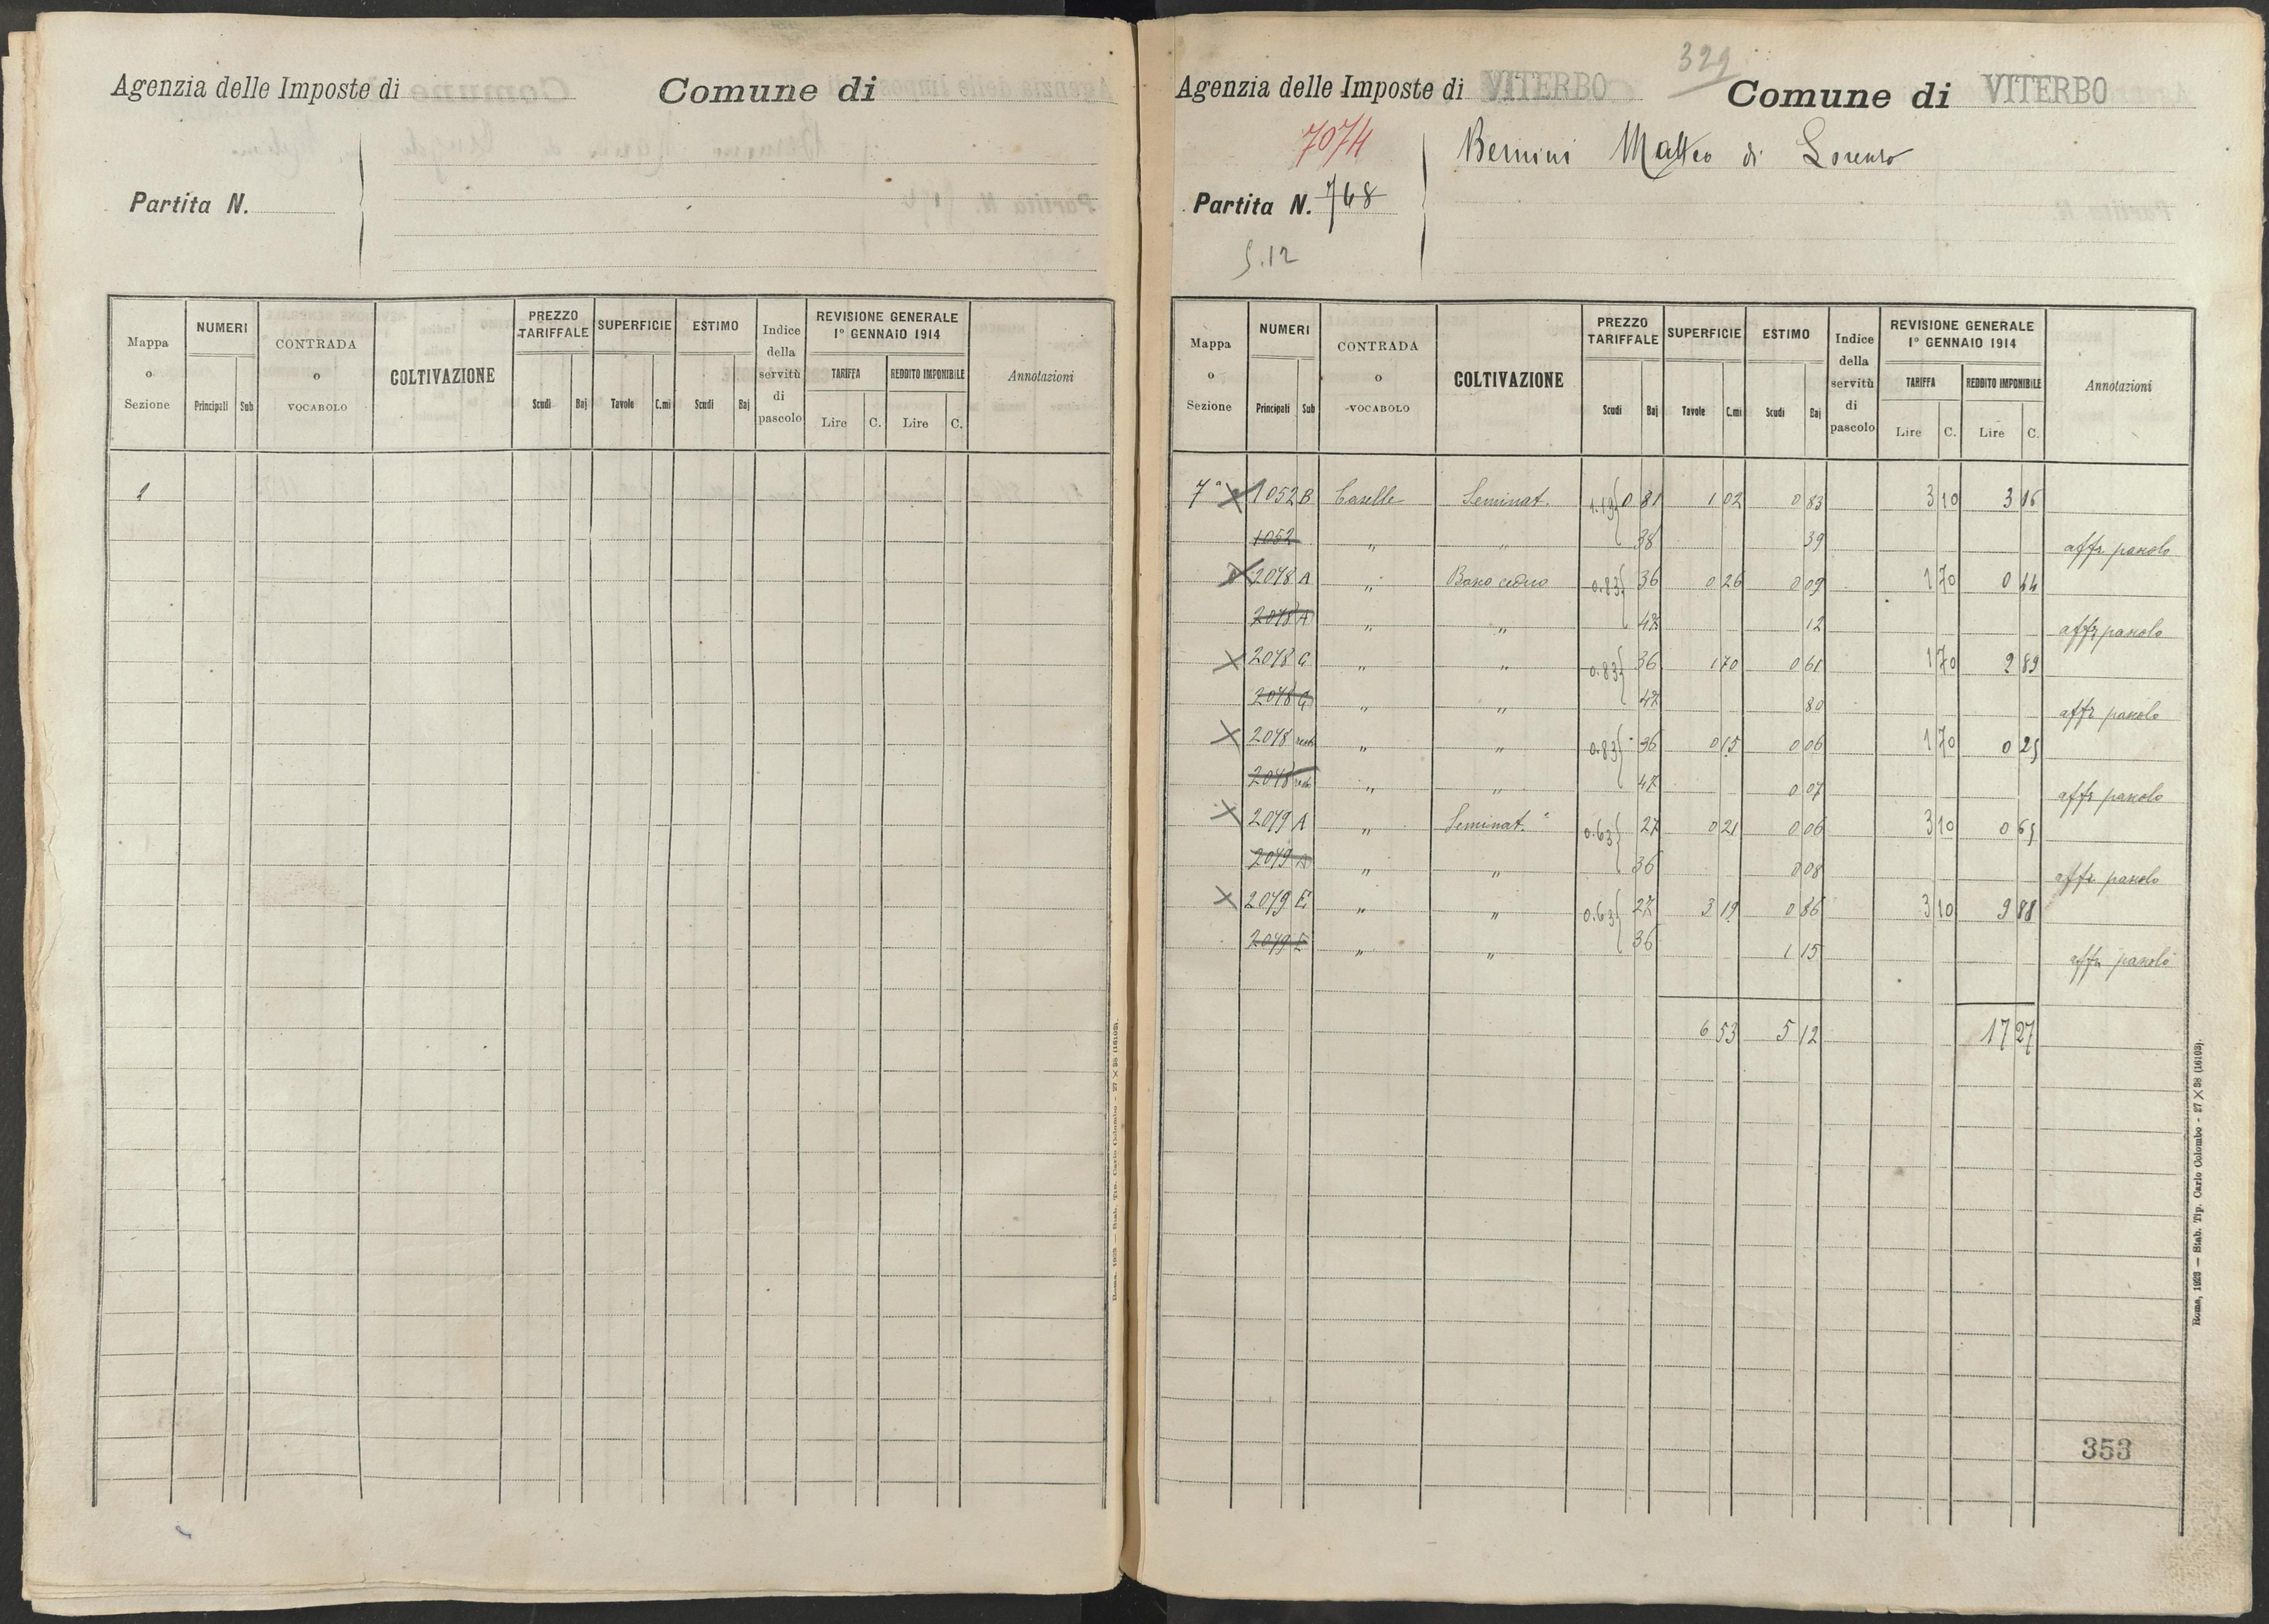 Agenzia delle Imposte di Comune di
Partita N.
Mappa o Sezione NUMERI Principali Sub CONTRADA o VOCABOLO COLTIVAZIONE PREZZO TARIFFALE Scudi Baj SUPERFICIE Tavole C.mi ESTIMO Scudi Baj Indice della servitù di pascolo REVISIONE GENERALE 1° GENNAIO 1914 TARIFFA Lire C. REDDITO IMPONIBILE Lire C. Annotazioni
Roma, 1923 — Stab. Tip. Carlo Colombo - 27 X 38 (16103).
329
Agenzia delle Imposte di VITERBO Comune di VITERBO
7074
Bernini Matteo di Lorenzo
Partita N. 768
5.12
Mappa o Sezione NUMERI Principali Sub CONTRADA o VOCABOLO COLTIVAZIONE PREZZO TARIFFALE Scudi Baj SUPERFICIE Tavole C.mi ESTIMO Scudi Baj Indice della servitù di pascolo REVISIONE GENERALE 1° GENNAIO 1914 TARIFFA Lire C. REDDITO IMPONIBILE Lire C. Annotazioni
7a 1052 B Caselle Seminat. 1.19 0 81 1 02 0 83 3 10 3 16
1052 " " 38 39 affr pascolo
2078 A " Bosco ceduo 0.83 36 0 26 0 09 1 70 0 44
2078 A " " 47 12 affr pascolo
2078 G " " 0.83 36 1 70 0 61 1 70 2 89
2078 G " " 47 80 affr pascolo
2078 resto " " 0.83 36 0 15 0 06 1 70 0 25
2078 resto " " 47 0 07 affr pascolo
2079 A " Seminat. 0.63 27 0 21 0 06 3 10 0 65
2079 A " " 36 0 08 affr pascolo
2079 E " " 0.63 27 3 19 0 86 3 10 9 88
2079 E " " 36 1 15 affr pascolo
6 53 5 12 17 27
353
Roma, 1923 — Stab. Tip. Carlo Colombo - 27 X 38 (16103).